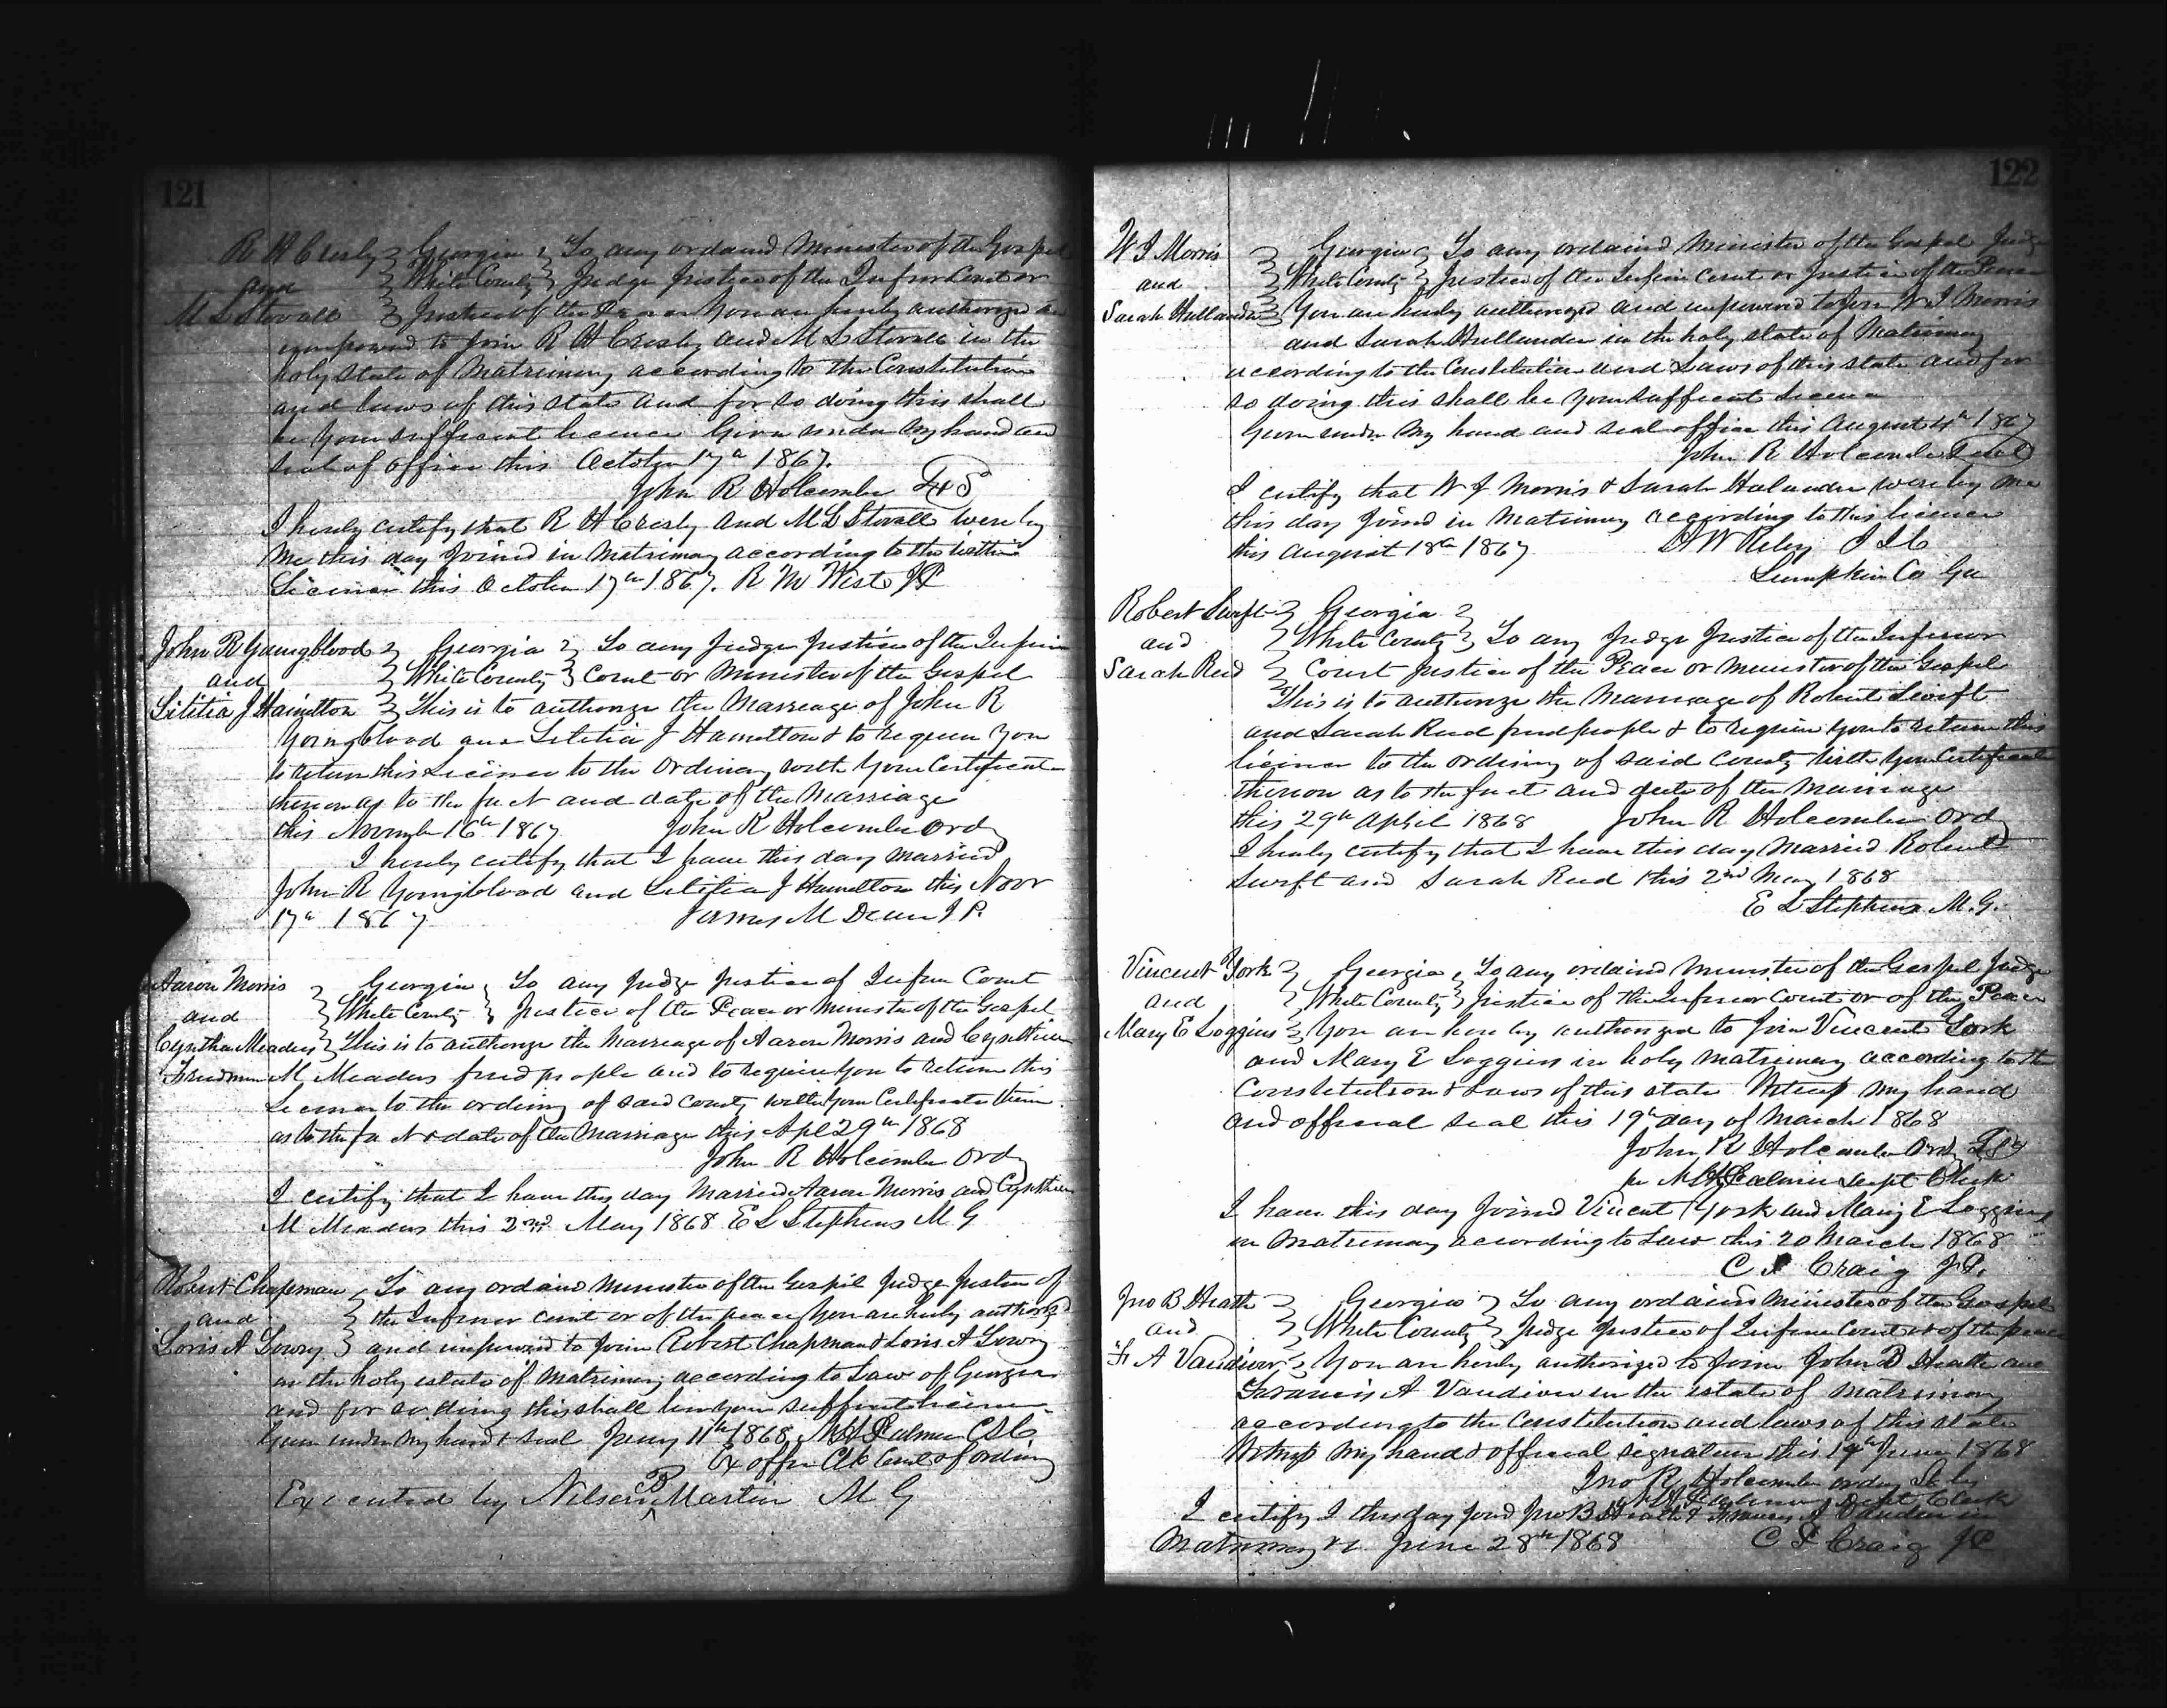 121
R H Cresly Georgia To any ordaind Minister of the Gospel
and White County Judge Justice of the Infror Court or
M L Stovall Justice of the Peace You are herely authorized
empowed to join R H Cresly and M L Stovall in the
holy state of Matrimony according to the Constitution
and laws of this State and for so doing this shall
be your suffecient licence Given under my hand and
seal of office this October 17th 1867.
John R Holcombe
I herely certify that R H Cresly and M L Stovall were by
me this day Joined in Matrimony according to the within
Licence this October 17th 1867. R M West JP
John R Youngblood Georgia To any Judge Justice of the Inferior
and White County Court or Minister of the Gospel
Letitia J Hamilton This is to authorize the Marreage of John R
Youngblood and Letitia J Hamelton & to requeir you
to return this Licence to the Ordinary with your Certificate
thereon as to the fact and date of the Marriage
this November 16th 1867 John R Holcombe Ordy
I herely certify that I have this day Married
John R Youngblood and Letitia J Hamelton this Novr
17th 1867 James M Dean J P.
Aaron Morris Georgia To any Judge Justice of Infror Court
and White County Justice of the Peace or Minister of the Gospel
Cynthia Meaders This is to authorize the Marreage of Aaron Morris and Cynthia
Freedmen M Meaders freed people and to requier you to return this
Licence to the ordinry of said County with your Certificate there
as to the fact & date of the Marriage this Apl 29th 1868
John R Holcombe Ordy
I certify that I have this day Married Aaron Morris and Cynthia
M Meaders this 2nd May 1868 E L Stephens M G
Robert Chapman To any ordaind Minister of the Gospil Judge Justice of
and the Inferior court or of the peace You are herely authorizd
Loris A Lowry and impowerd to join Robert Chapman & Loris A Lowry
in the holy estate of Matrimony according to Law of Georgia
and for so doing this shall be your sufficent licence
Given under my hand & seal Jany 11th 1868 M H Palmer CSC
Ex offic Clk Court of ordinry
Executed by Nelson R Martin M G
122
W J Morris Georgia To any ordaind Minister of the Gospel Judge
and White County Justice of the Infror Court or Justice of the Peace
Sarah Hullander You are herely authorized and empowerd to join W J Morris
and Sarah Hullander in the holy state of Matrimony
according to the Constitution and Laws of this state and for
so doing this shall be your suffecent Licence
Given under my hand and seal office this August 4th 1867
John R Holcombe Seal
I certify that W J Morris & Sarah Hulander were by me
this day Joind in Matrimony according to this licence
this August 18th 1867 W Riley J I C
Lumpkin Co Ga
Robert Swift Georgia
and White County To any Judge Justice of the Inferior
Sarah Reed Court Justice of the Peace or Minister of the Gospel
This is to authorize the Marriage of Robert Swift
and Sarah Reed freed people & to requier you to return this
licence to the ordinry of said County with your Certificate
thereon as to the fact and date of the Marriage
this 29th April 1868 John R Holcombe Ordy
I herely certify that I have this day Married Robert
Swift and Sarah Reed this 2nd May 1868
E L Stephens M.G.
Vincent York Georgia To any ordaind Minister of the Gospel Judge
and White County Justice of the Inferior Court or of the Peace
Mary E Loggins You are hereby authorized to join Vincent York
and Mary E Loggins in holy Matrimony according to the
Constitution & Laws of this state Witness my hand
and offical seal this 19th day of March 1868
John R Holcombe Ordy
per M H Palmer Dept Clerk
I have this day Joind Vincent York and Mary E Loggins
in Matrimony according to Law this 20 March 1868
C Craig JP.
Jno B Heath Georgia To any ordaind Minister of the Gospel
and White County Judge Justice of Infror Court or of the peace
F A Vandiver You are herely authorized to join John B Heath and
Francis A Vandiver in the estate of Matrimony
according to the Constitution and laws of this state
Witness my hand & offical signature this 19th June 1868
Jno R Holcombe ordry by
M H Palmer Dept Clerk
I certify I this day joind Jno B Heath & Francis A Vandiver in
Matrimony &c June 28th 1868 C Craig JP